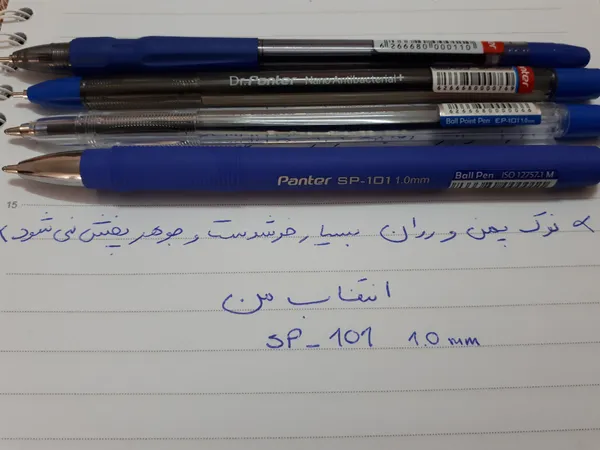 6266680000110
Dr.Panter NanoAntibacterial+
Ball Point Pen E.P-101 1.0mm
Panter SP-101 1.0mm Ball Pen ISO 12757.1 M
15
نوک پهن و روان بسیار خوشدست و جوهر پخش نمی شود
انتخاب من
SP-101 1.0 mm